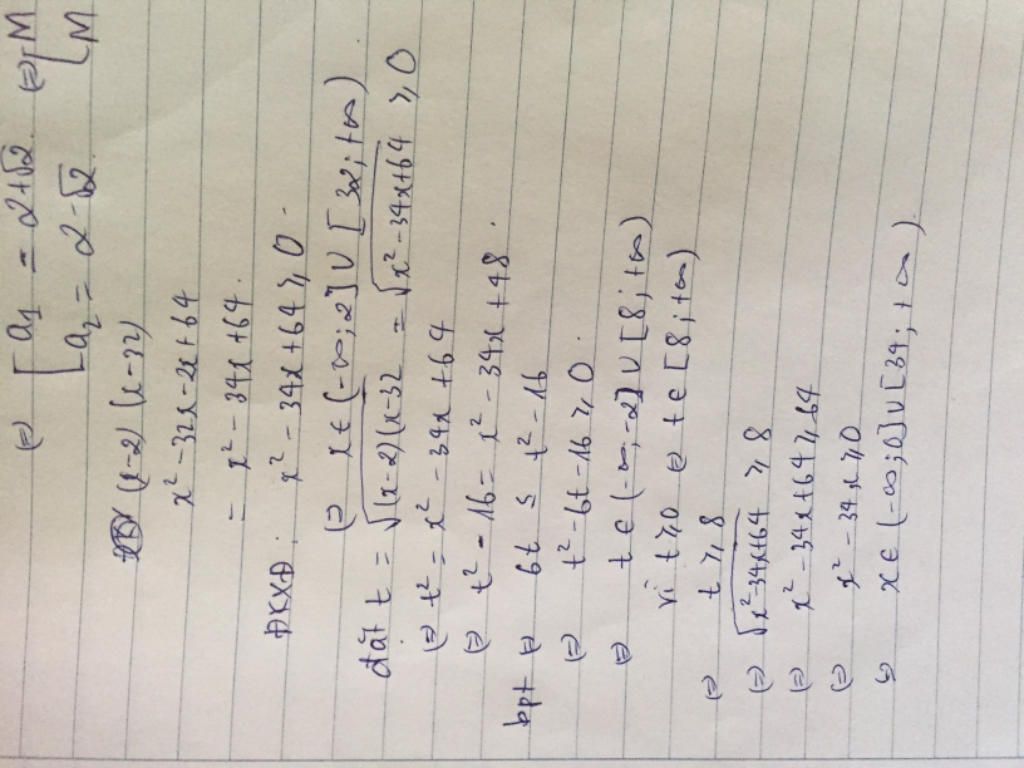 (=) [ a₁ = 2+√2. (=) [ M
[ a₂ = 2-√2. [ M
(x-2)(x-32)
x² - 32x - 2x + 64
= x² - 34x + 64.
ĐKXĐ: x² - 34x + 64 ≥ 0.
(=) x ∈ (-∞; 2] ∪ [32; +∞)
đặt t = √(x-2)(x-32 = √x² - 34x + 64 ≥ 0
(=) t² = x² - 34x + 64
(=) t² - 16 = x² - 34x + 48.
bpt (=) 6t ≤ t² - 16
(=) t² - 6t - 16 ≥ 0.
(=) t ∈ (-∞; -2] ∪ [8; +∞)
vì t ≥ 0 (=) t ∈ [8; +∞)
(=) t ≥ 8
(=) √x² - 34x + 64 ≥ 8
(=) x² - 34x + 64 ≥ 64
(=) x² - 34x ≥ 0
(=) x ∈ (-∞; 0] ∪ [34; +∞)